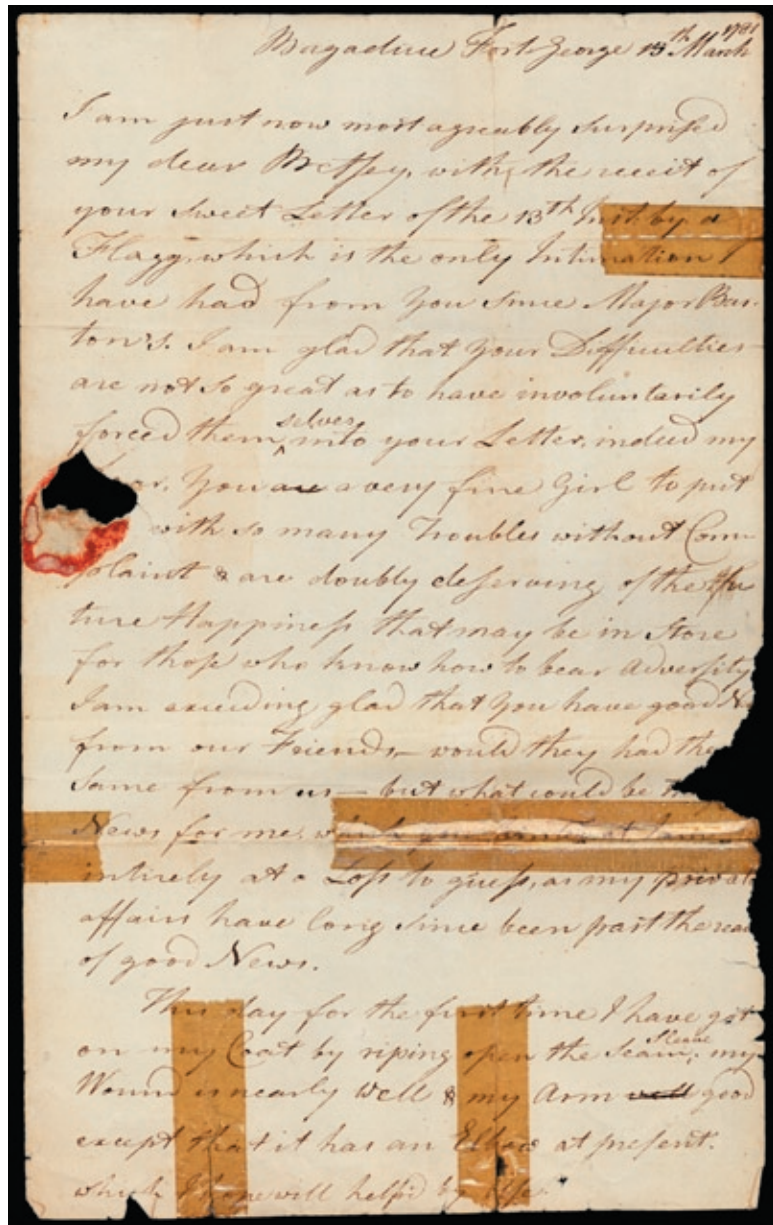 Bagaduce Fort George 15th March 1781
I am just now most agreably surprised
my dear Betsey, with the receit of
your sweet Letter of the 13th Inst. by a
Flagg, which is the only Intimation I
have had from you since Major Bur-
ton's. I am glad that your Difficulties
are not so great as to have involuntarily
forced themselves into your Letter, indeed my
You are a very fine Girl to put
with so many Troubles without Com-
plaint & are doubly deserving of the fu
ture Happiness that may be in Store
for those who know how to bear Adversity
I am exceeding glad that you have good
from our Friends, — would they had the
same from us — but what could be
News for me, which you at
intirely at a Loss to guess, as my private
affairs have long since been past the
of good News.
This day for the first time I have got
on my Coat by riping open the Sleave Seam; my
Wound is nearly well & my Arm well good
except that it has an Elbow at present.
which I hope will helpd by Use.